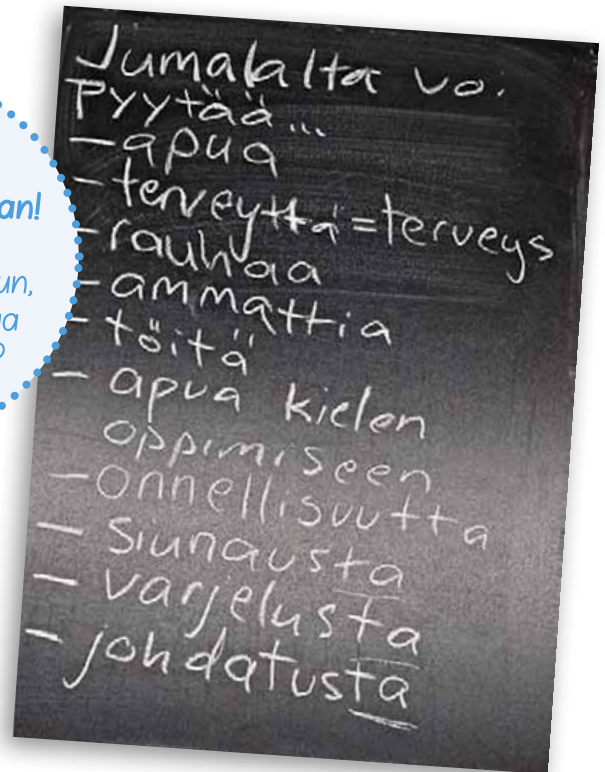 an!
un,
Jumalalta voi
pyytää...
- apua
- terveyttä = terveys
- rauhaa
- ammattia
- töitä
- apua kielen
oppimiseen
- onnellisuutta
- siunausta
- varjelusta
- johdatusta